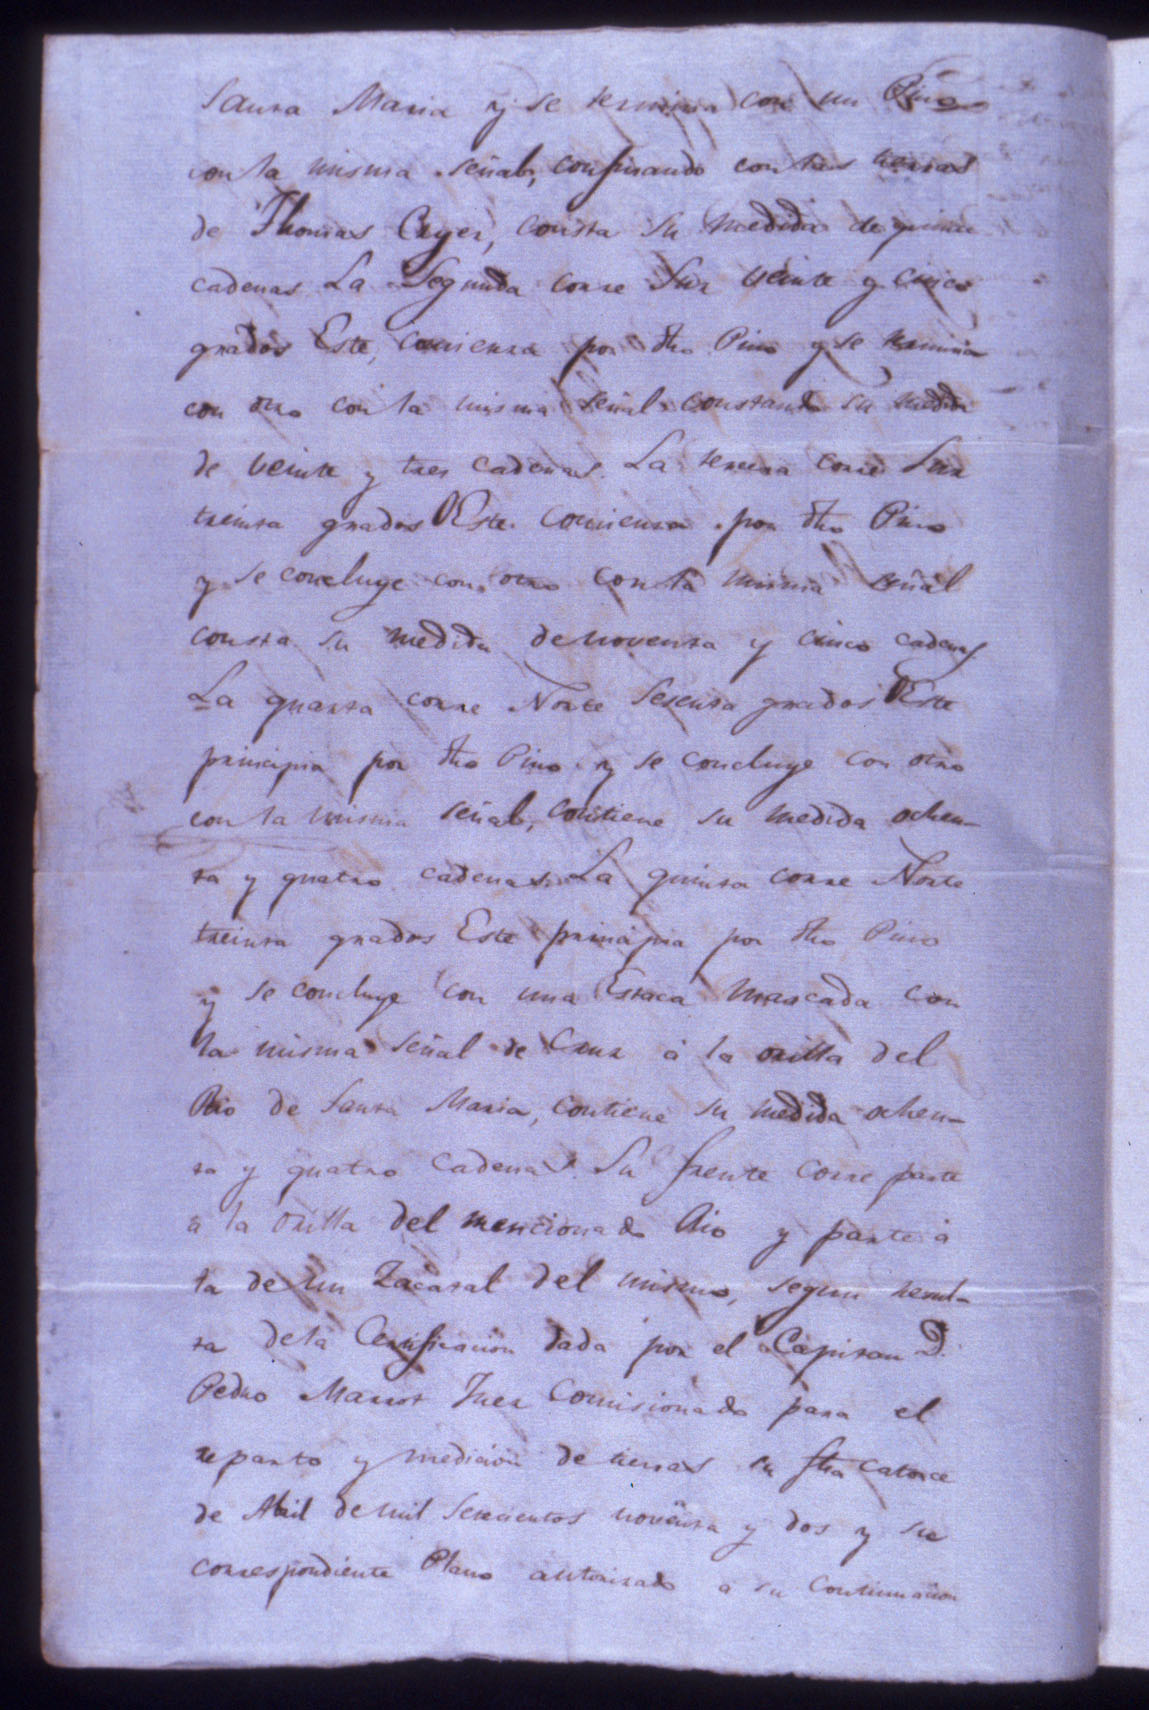 Santa Maria y se termina con un Pino
con la misma señal, confinando con las tierras
de Thomas Cryer, consta su medida de quince
cadenas. La Segunda corre Sur veinte y cinco
grados Este, comienza por dho Pino y se termina
con otro con la misma señal constando su medida
de veinte y tres cadenas. La tercera corre Sur
treinta grados OEste. comienza por dho Pino
y se concluye con otro con la misma señal
consta su medida de noventa y cinco cadenas.
La quarta corre Norte sesenta grados OEste
principia por dho Pino y se concluye con otro
con la misma señal, contiene su medida ochen-
ta y quatro cadenas. La quinta corre Norte
treinta grados Este principia por dho Pino
y se concluye con una Estaca marcada con
la misma señal de Cruz à la orilla del
Rio de Santa Maria, contiene su medida ochen-
ta y quatro cadenas. Su frente corre parte
à la orilla del mencionado Rio y parte à
la de un Zacatal del mismo, segun resul-
ta de la Certificacion dada por el Capitan D.
Pedro Marrot Juez Comisionado para el
reparto y medición de tierras su fha catorce
de Abril de mil setecientos noventa y dos y su
correspondiente Plano autorizado a su Continuacion